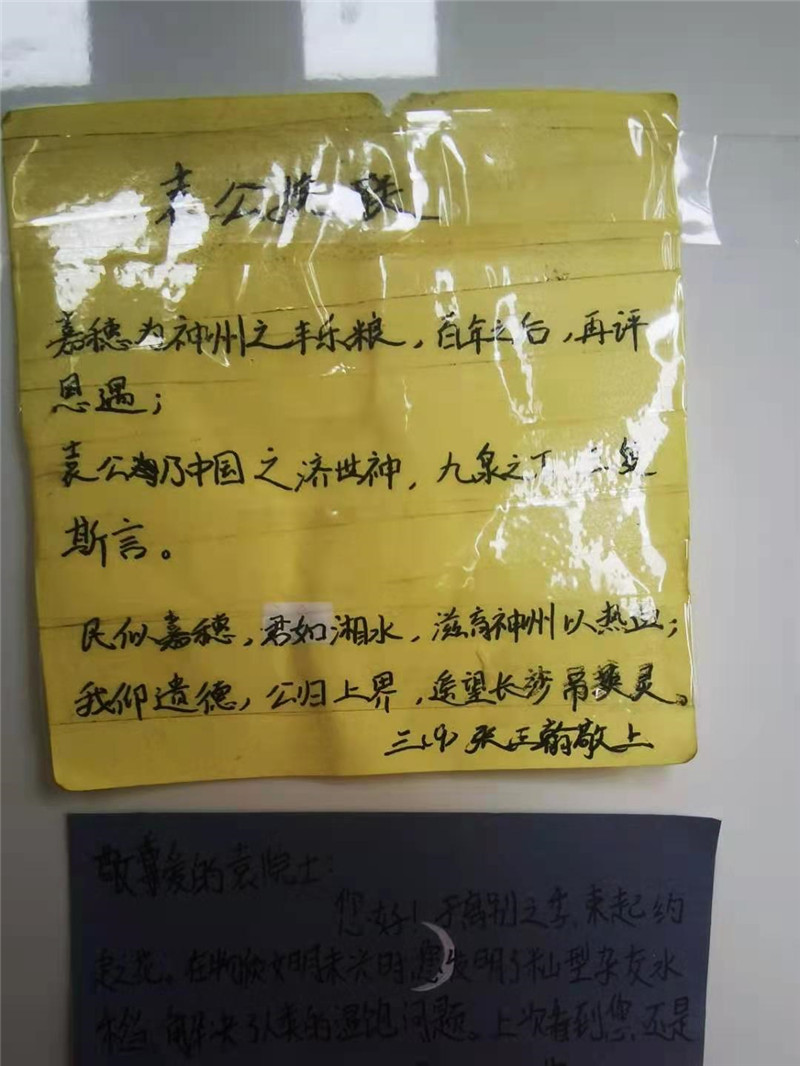 袁公挽联
嘉穗为神州之丰乐粮，百年之后，再评
恩遇；
袁公乃中国之济世神，九泉之下
斯言。
民似嘉穗，君如湘水，滋育神州以热血；
我仰遗德，公归上界，遥望长沙吊英灵。
三(9) 张正翰敬上
敬尊爱的袁院士：
您好！于离别之季，束起约
之花。在物质文明未兴时，您发明了籼型杂交水
稻，解决了人类的温饱问题。上次看到您，还是